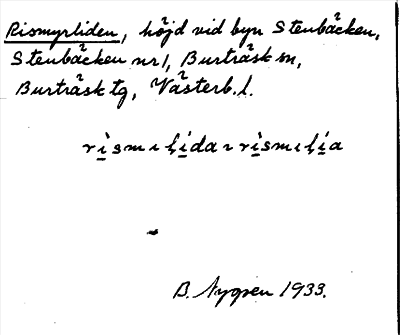 Rismyrliden, höjd vid byn Stenbäcken,
Stenbäcken nr 1, Burträsk sn,
Burträsk tg, Västerb. l.
B. Nygren 1933.